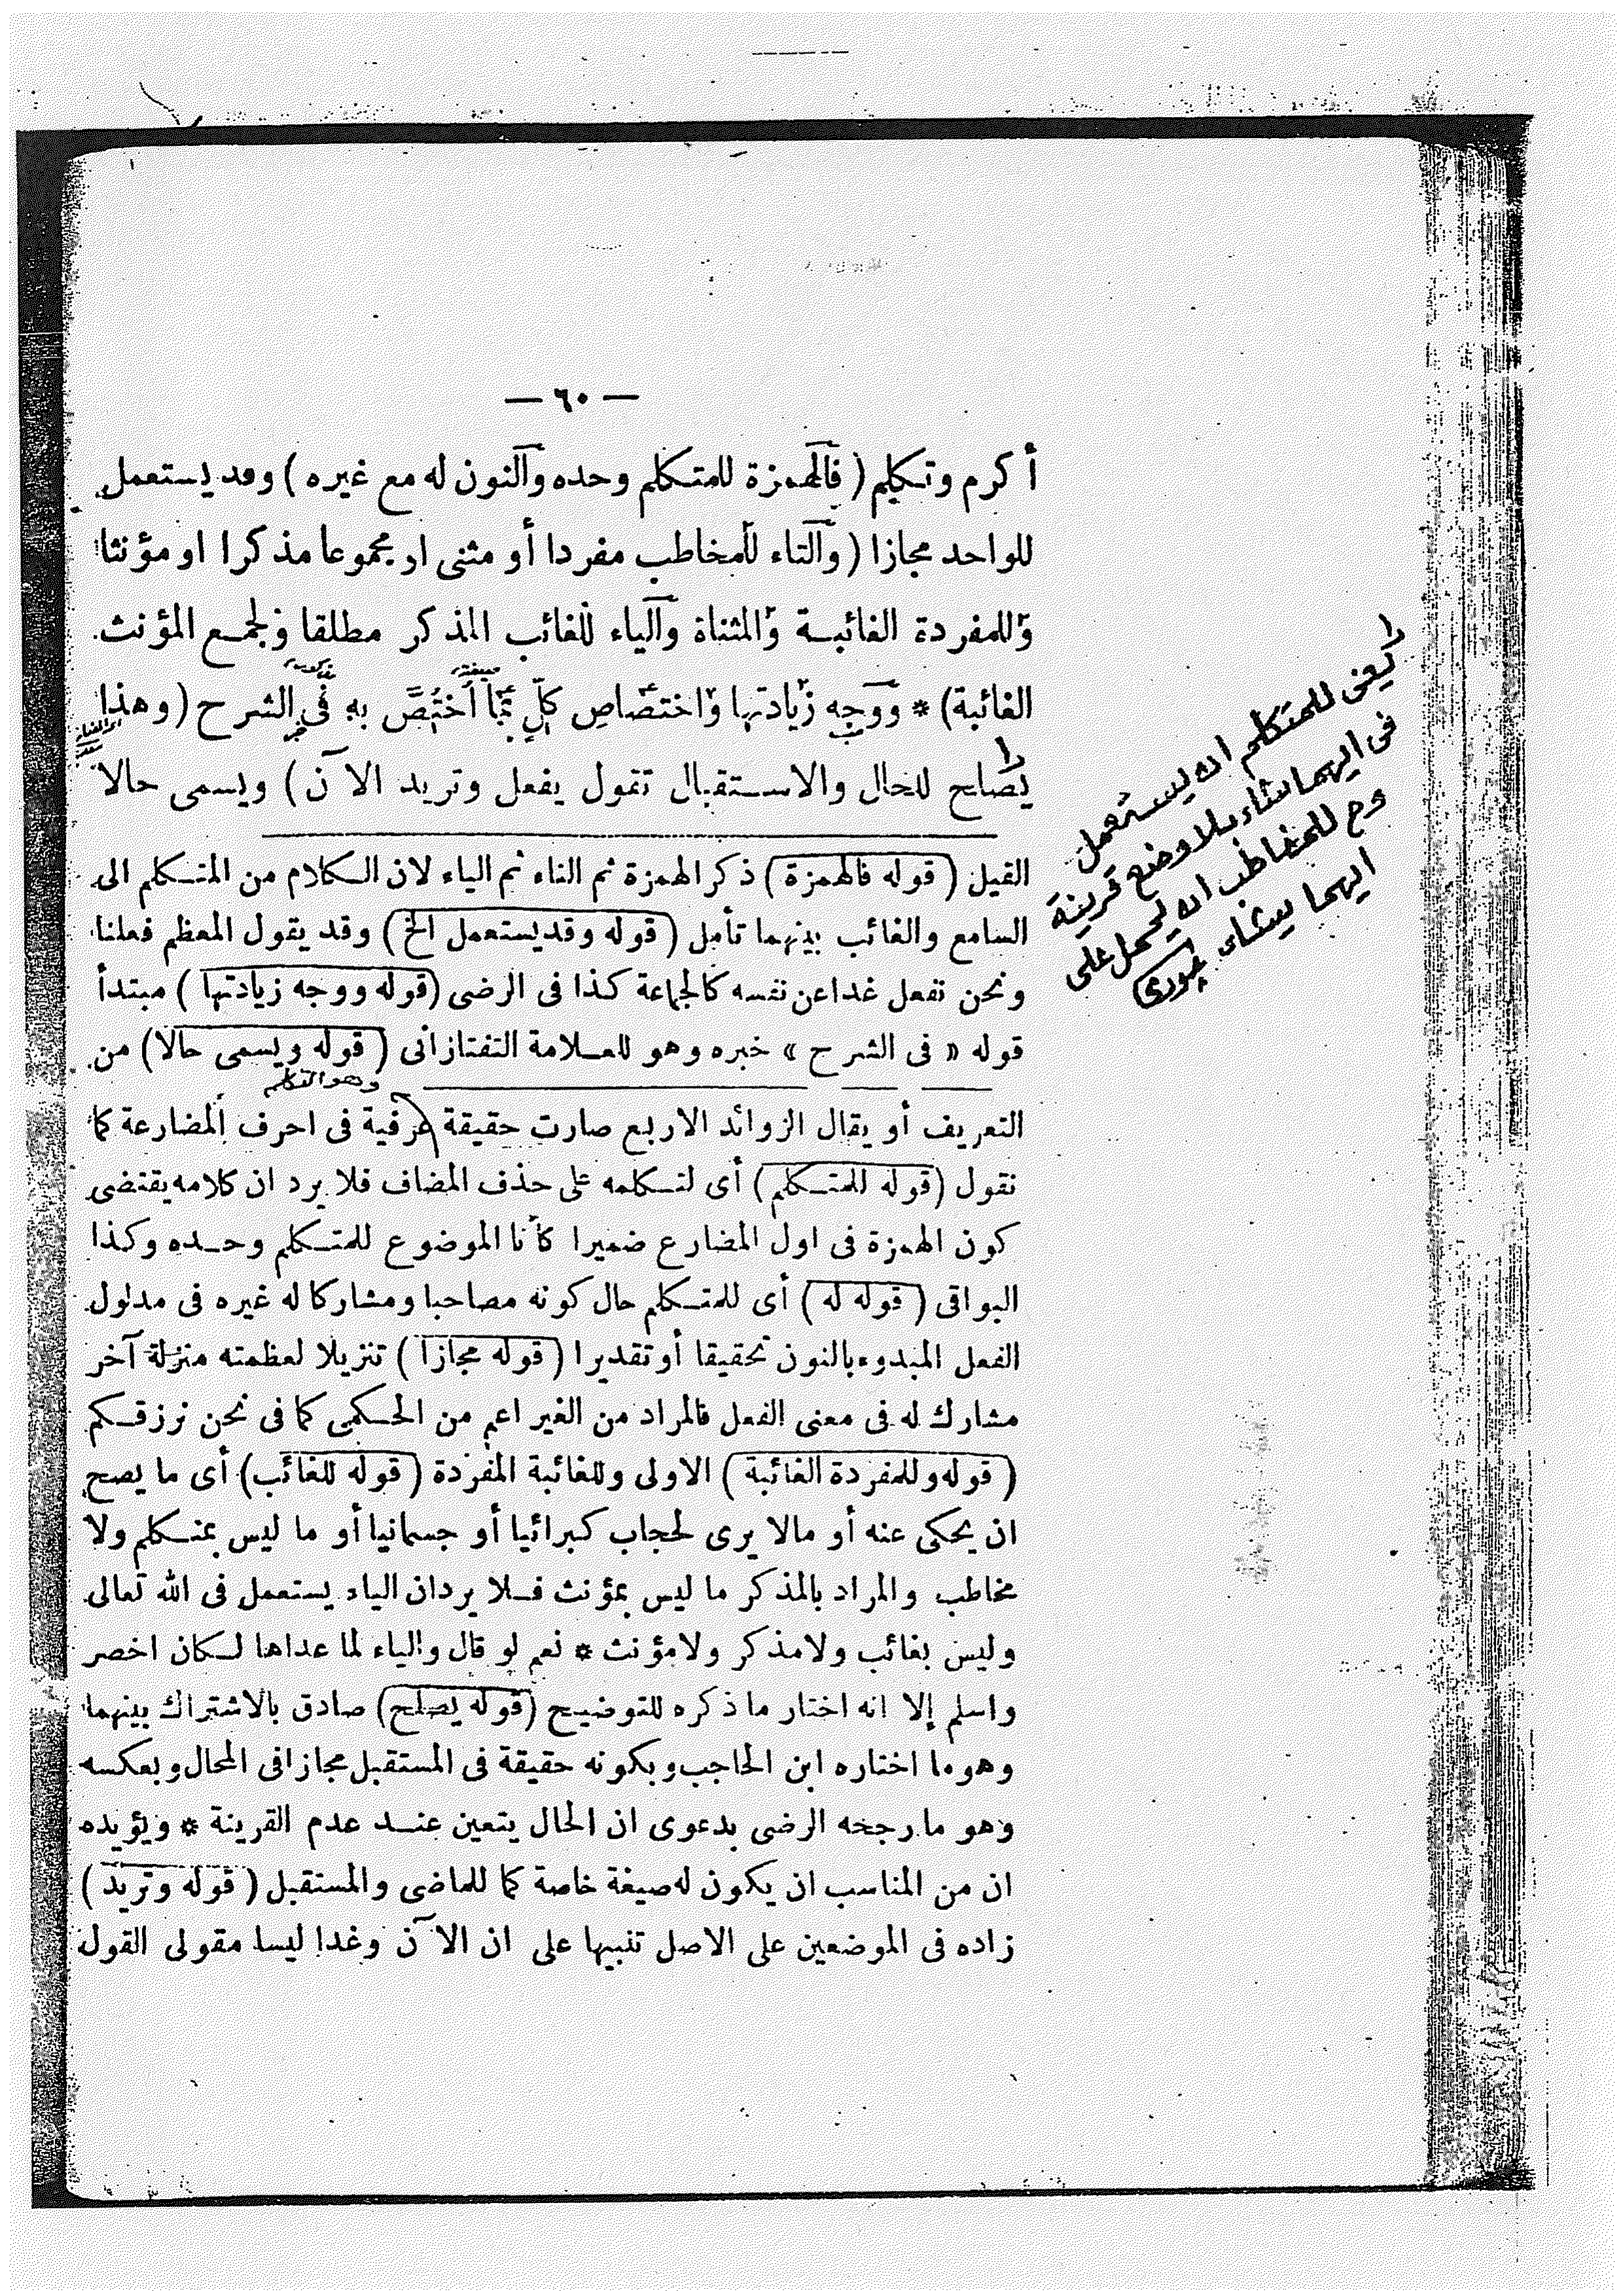 — ٦٠ —
أكرم وتكليم (فالهمزة للمتكلم وحده والنون له مع غيره) وقد يستعمل
للواحد مجازا (والتاء للمخاطب مفردا أو مثنى او مجموعا مذكرا او مؤنثا
وللمفردة الغائبة والمثناة والياء للغائب المذكر مطلقا ولجمع المؤنث
الغائبة) * ووجه زيادتها واختصاص كل بما اختص به فى الشرح (وهذا
يصلح للحال والاستقبال تقول يفعل وتريد الآن) ويسمى حالا
القيل (قوله فالهمزة) ذكر الهمزة ثم التاء ثم الياء لان الكلام من المتكلم الى
السامع والغائب بينهما تأمل (قوله وقد يستعمل الخ) وقد يقول المعظم فعلنا
ونحن نفعل غدا عن نفسه كالجماعة كذا فى الرضى (قوله ووجه زيادتها) مبتدأ
قوله «فى الشرح» خبره وهو للعلامة التفتازانى (قوله ويسمى حالا) من
وهو التكلم
التعريف أو يقال الزوائد الاربع صارت حقيقة عرفية فى احرف المضارعة كما
نقول (قوله للمتكلم) أى لتكلمه على حذف المضاف فلا يرد ان كلامه يقتضى
كون الهمزة فى اول المضارع ضميرا كأنا الموضوع للمتكلم وحده وكذا
البواقى (قوله له) أى للمتكلم حال كونه مصاحبا ومشاركا له غيره فى مدلول
الفعل المبدوء بالنون تحقيقا أو تقديرا (قوله مجازا) تنزيلا لعظمته منزلة آخر
مشارك له فى معنى الفعل فالمراد من الغير اعم من الحكمى كما فى نحن نرزقكم
(قوله وللمفردة الغائبة) الاولى وللغائبة المفردة (قوله للغائب) أى ما يصح
ان يحكى عنه أو مالا يرى لحجاب كبرائيا أو جسمانيا أو ما ليس بمتكلم ولا
مخاطب والمراد بالمذكر ما ليس بمؤنث فلا يرد ان الياء يستعمل فى الله تعالى
وليس بغائب ولا مذكر ولا مؤنث * نعم لو قال والياء لما عداها لكان اخصر
واسلم إلا انه اختار ما ذكره للتوضيح (قوله يصلح) صادق بالاشتراك بينهما
وهو ما اختاره ابن الحاجب وبكونه حقيقة فى المستقبل مجازا فى الحال وبعكسه
وهو ما رجحه الرضى بدعوى ان الحال يتعين عند عدم القرينة * ويؤيده
ان من المناسب ان يكون له صيغة خاصة كما للماضى والمستقبل (قوله وتريد)
زاده فى الموضعين على الاصل تنبيها على ان الآن وغدا ليسا مقولى القول
يعنى للمتكلم انه يستعمل
فى ايهما شاء بلا وضع قرينة
وح للمخاطب انه يحمل على
ايهما يشاء